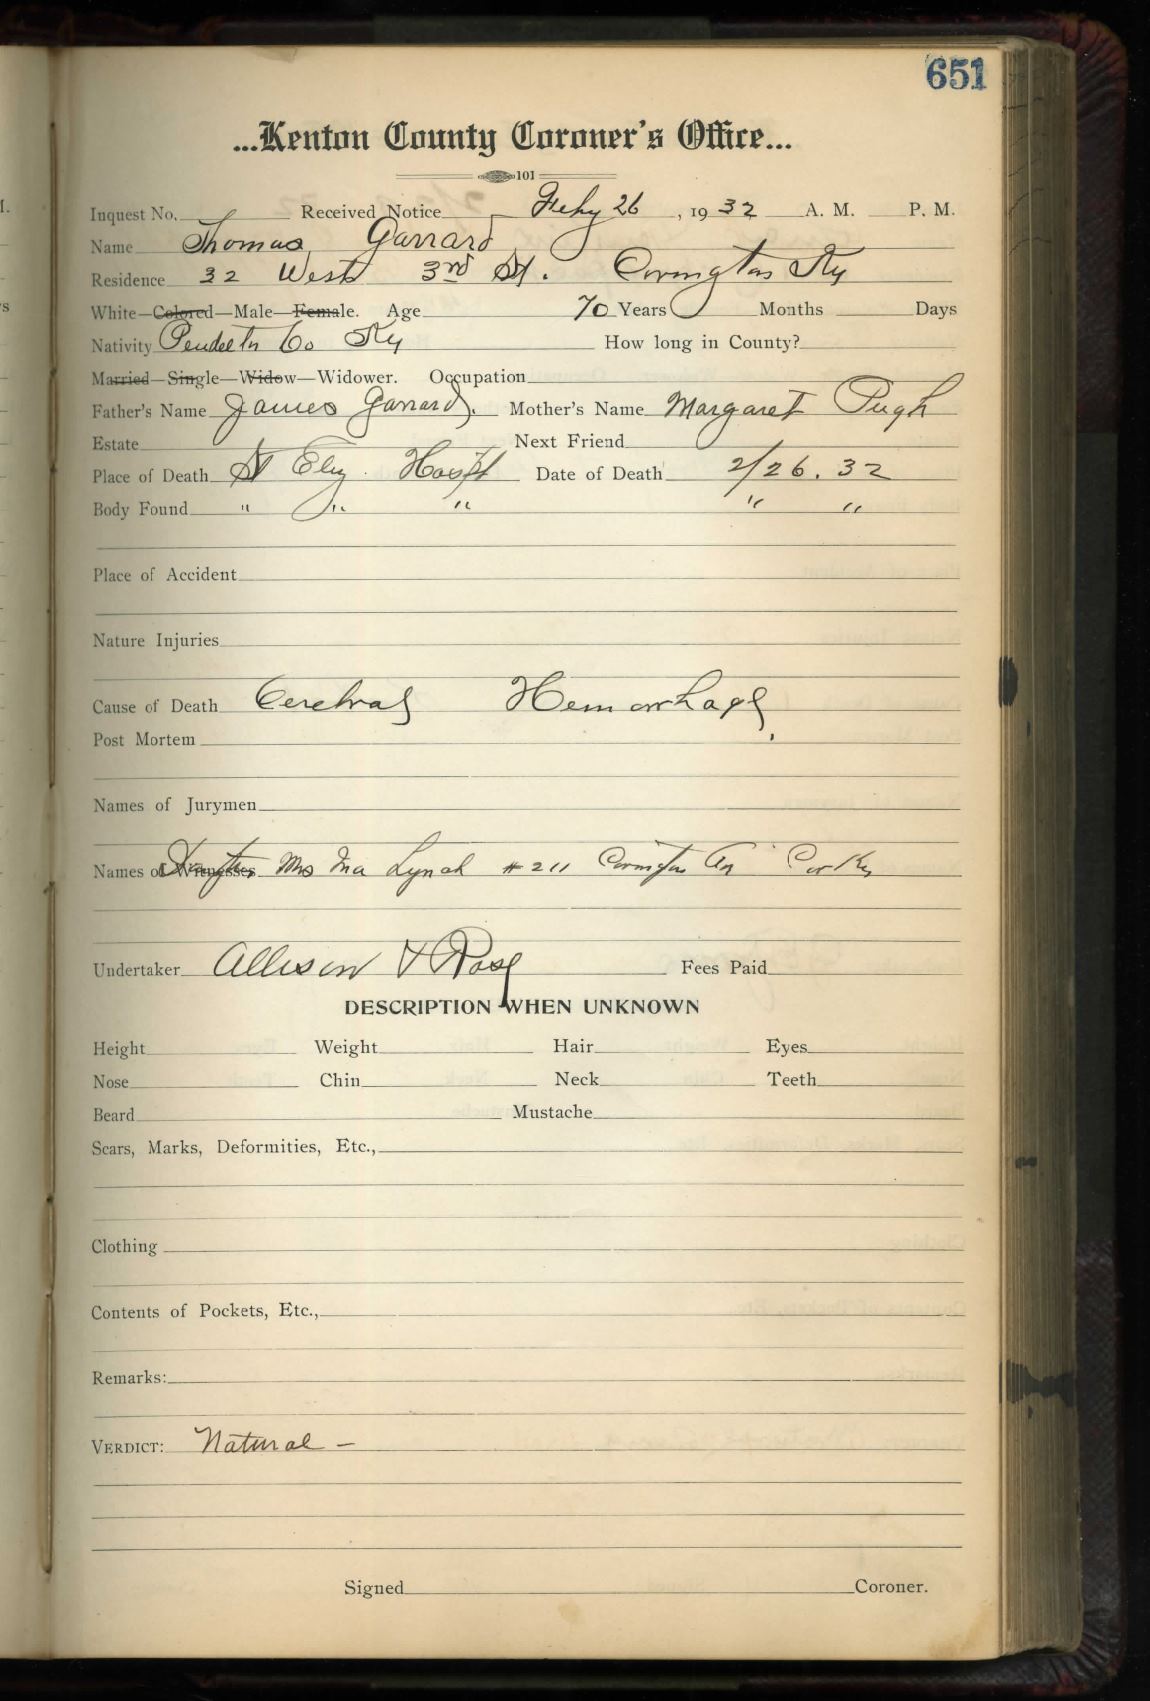 651
...Kenton County Coroner's Office...
101
Inquest No. Received Notice Feby 26, 1932 A. M. P. M.
Name Thomas Garrard
Residence 32 West 3rd St. Covington Ky
White—Colored—Male—Female. Age 70 Years Months Days
Nativity Pendleton Co Ky How long in County?
Married—Single—Widow—Widower. Occupation
Father's Name James Garrard. Mother's Name Margaret Pugh
Estate Next Friend
Place of Death St Eliz. Hospt Date of Death 2/26.32
Body Found " " " " "
Place of Accident
Nature Injuries
Cause of Death Cerebral Hemorrhage
Post Mortem
Names of Jurymen
Names of Witnesses Daughter Mrs Lynch #211 Covington Av Cov Ky
Undertaker Allison & Rose Fees Paid
DESCRIPTION WHEN UNKNOWN
Height Weight Hair Eyes
Nose Chin Neck Teeth
Beard Mustache
Scars, Marks, Deformities, Etc.,
Clothing
Contents of Pockets, Etc.,
Remarks:
VERDICT: Natural –
Signed Coroner.